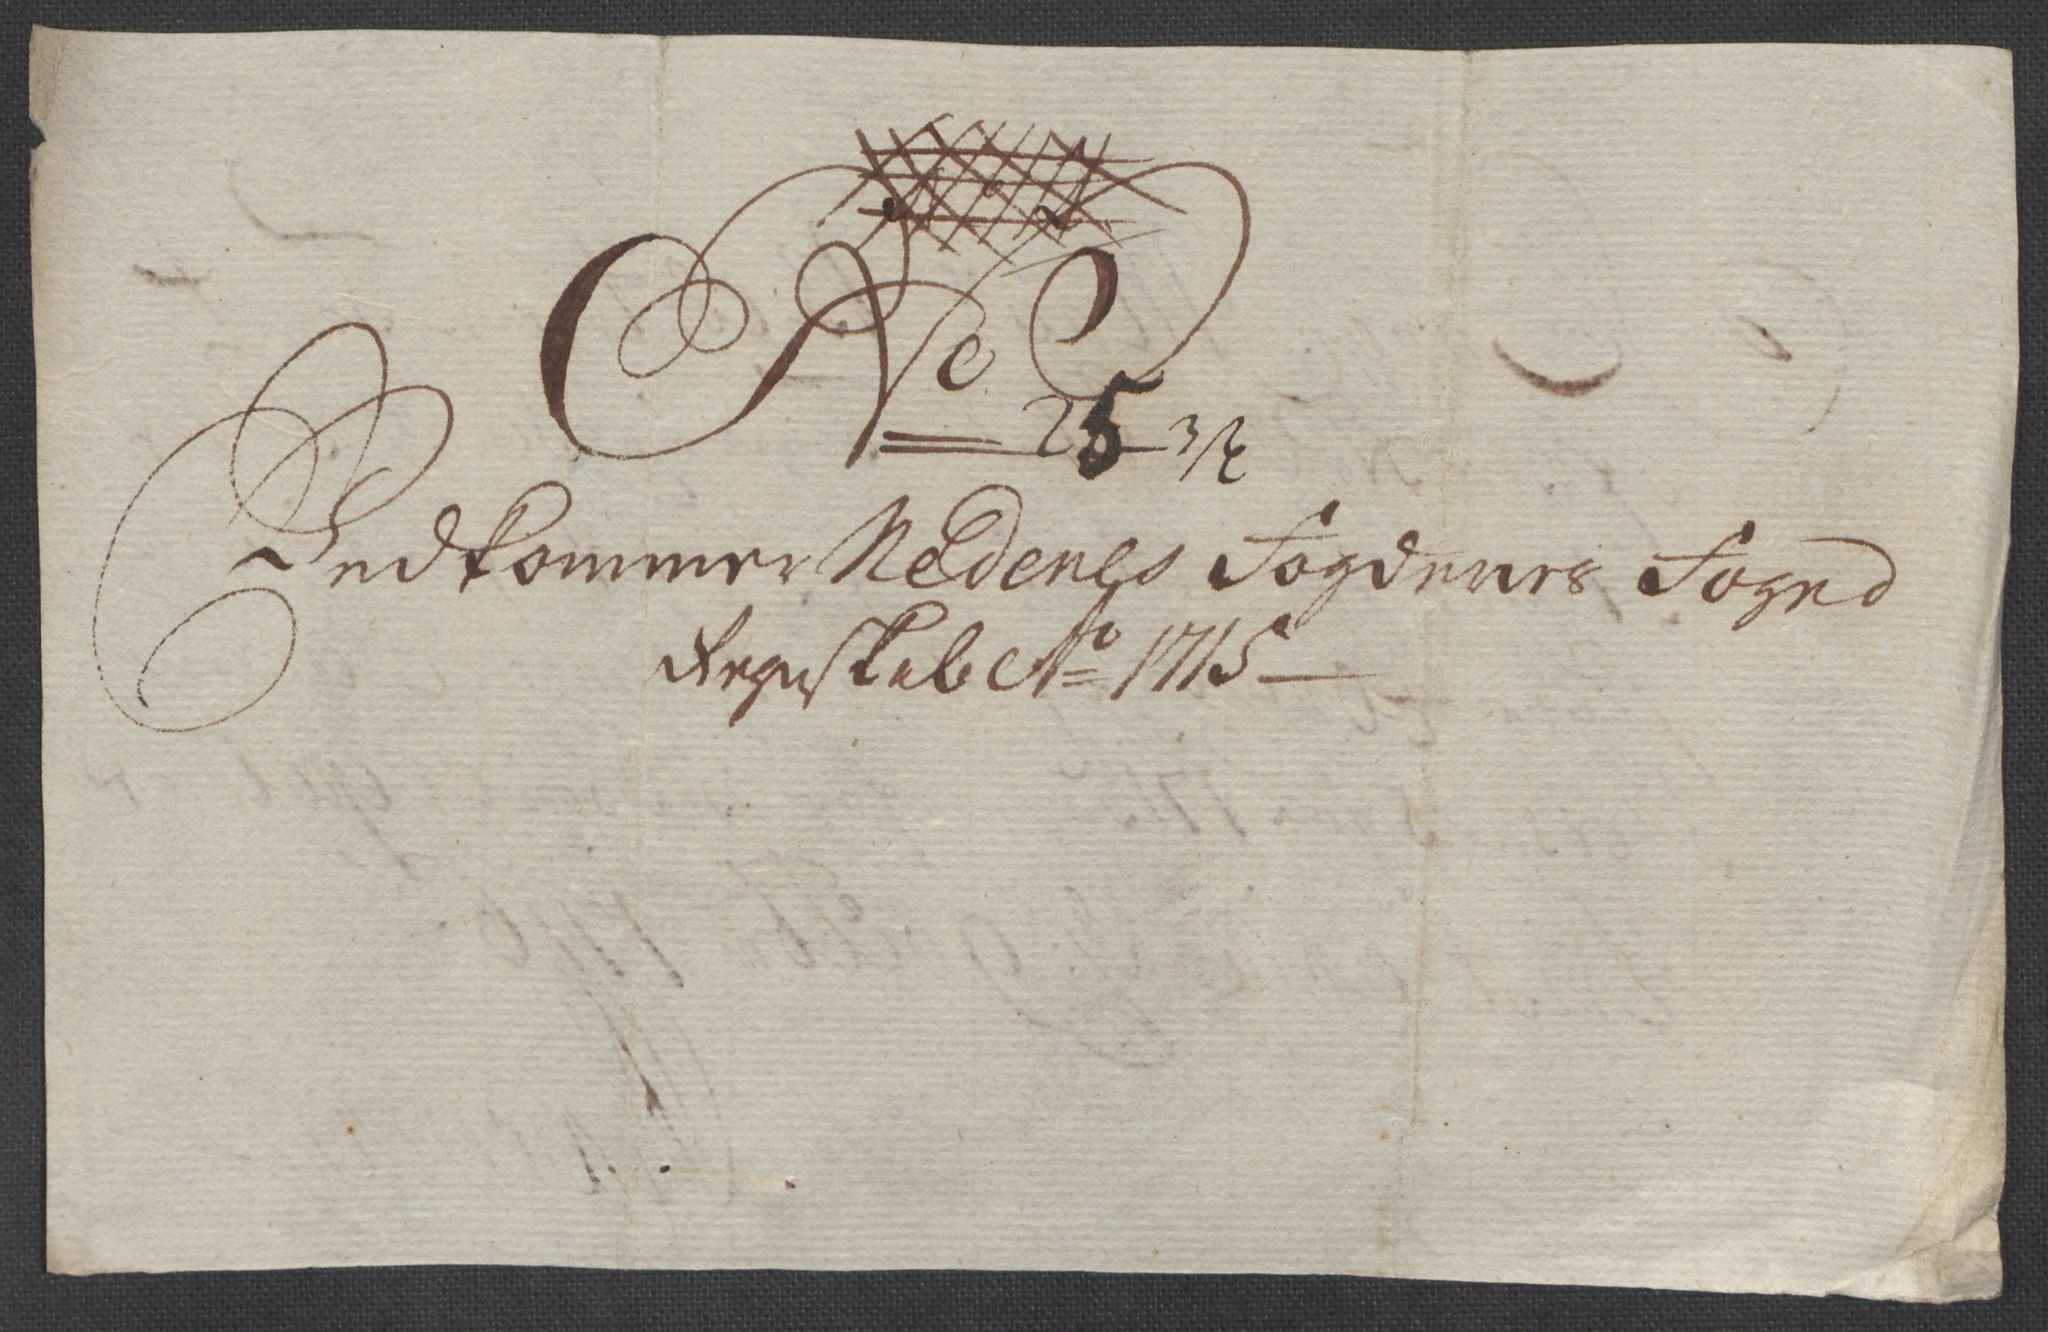 No
25 3/4
Vedkommer Nedenes Fogderies Foged
Regnskab Ao 1715